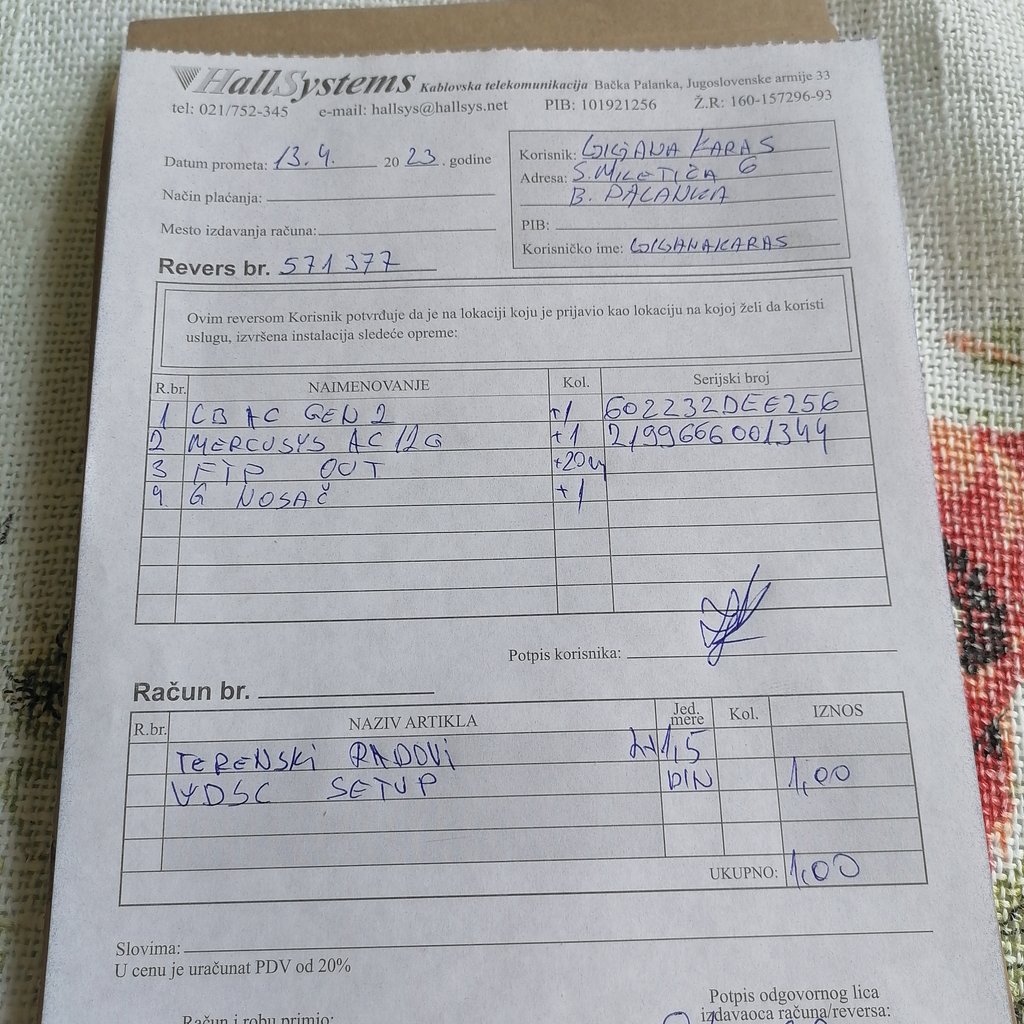 HallSystems Kablovska telekomunikacija Bačka Palanka, Jugoslovenske armije 33
tel: 021/752-345 e-mail: hallsys@hallsys.net PIB: 101921256 Ž.R: 160-157296-93
Datum prometa: 13.4. 2023. godine
Način plaćanja:
Mesto izdavanja računa:
Revers br. 571377
Korisnik: KARAS
Adresa: S.MILETIĆA 6
B. PALANKA
PIB:
Korisničko ime:
Ovim reversom Korisnik potvrđuje da je na lokaciji koju je prijavio kao lokaciju na kojoj želi da koristi
uslugu, izvršena instalacija sledeće opreme:
R.br. NAIMENOVANJE Kol. Serijski broj
1 CB AC GEN 2 +1 602232DEE256
2 MERCUSYS AC12G +1 2199666001344
3 FTP OUT +20m
4 G NOSAČ +1
Potpis korisnika:
Račun br.
R.br. NAZIV ARTIKLA Jed. mere Kol. IZNOS
TERENSKI RADOVI 1,5
SETUP DIN 1,00
UKUPNO: 1,00
Slovima:
U cenu je uračunat PDV od 20%
Račun i robu primio:
Potpis odgovornog lica
izdavaoca računa/reversa: